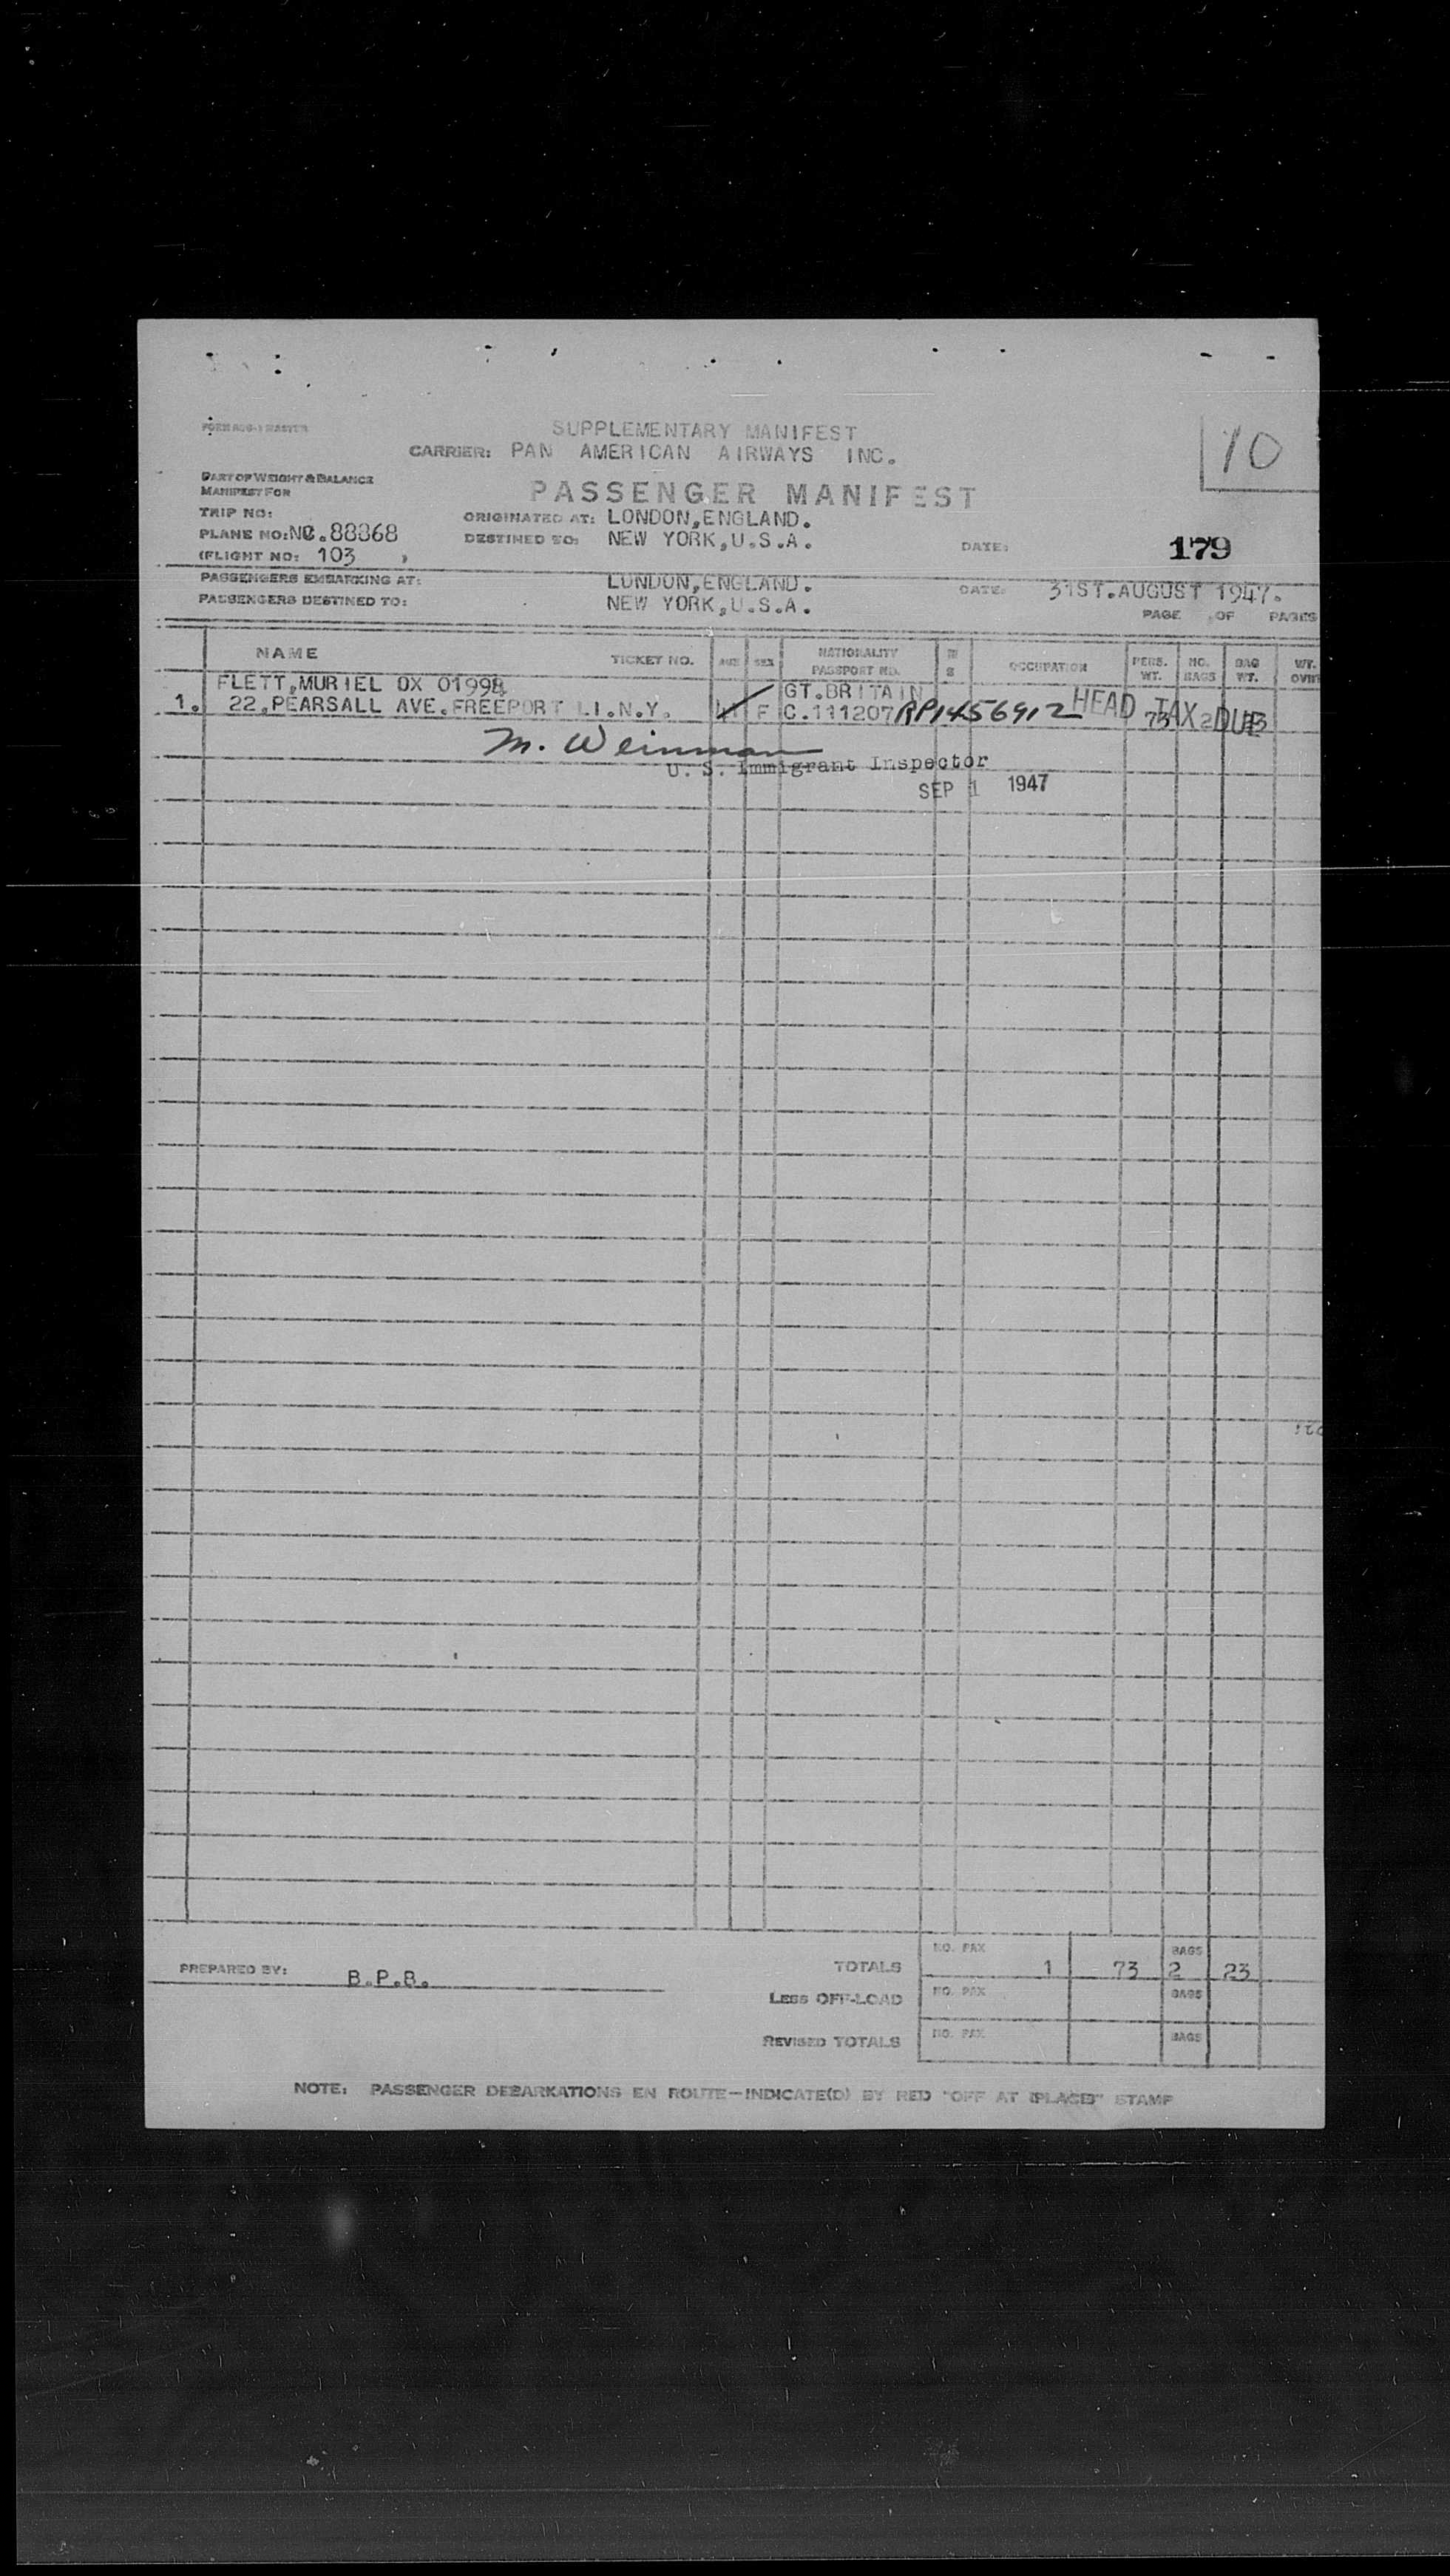 FORM ASG-1 MASTER
SUPPLEMENTARY MANIFEST
CARRIER: PAN AMERICAN AIRWAYS INC.
10
PART OF WEIGHT & BALANCE
MANIFEST FOR
PASSENGER MANIFEST
TRIP NO:
ORIGINATED AT: LONDON,ENGLAND.
PLANE NO: NC.88868
DESTINED TO: NEW YORK,U.S.A.
DATE: 179
(FLIGHT NO: 103 )
PASSENGERS EMBARKING AT: LONDON,ENGLAND. DATE: 31ST.AUGUST 1947.
PASSENGERS DESTINED TO: NEW YORK,U.S.A.
PAGE OF PAGES
NAME TICKET NO. AGE SEX NATIONALITY PASSPORT NO. M S OCCUPATION PERS. WT. NO. BAGS BAG WT. WT. OVER
FLETT,MURIEL OX 01998 GT.BRITAIN
1. 22,PEARSALL AVE.FREEPORT L.I.N.Y. F C.111207 RP1456912 HEAD TAX DUE 73 2 23
M. Weinman
U. S. Immigrant Inspector
SEP 1 1947
PREPARED BY: B.P.B.
TOTALS NO. PAX 1 73 BAGS 2 23
LESS OFF-LOAD NO. PAX BAGS
REVISED TOTALS NO. PAX BAGS
NOTE: PASSENGER DEBARKATIONS EN ROUTE—INDICATE(D) BY RED "OFF AT (PLACE)" STAMP